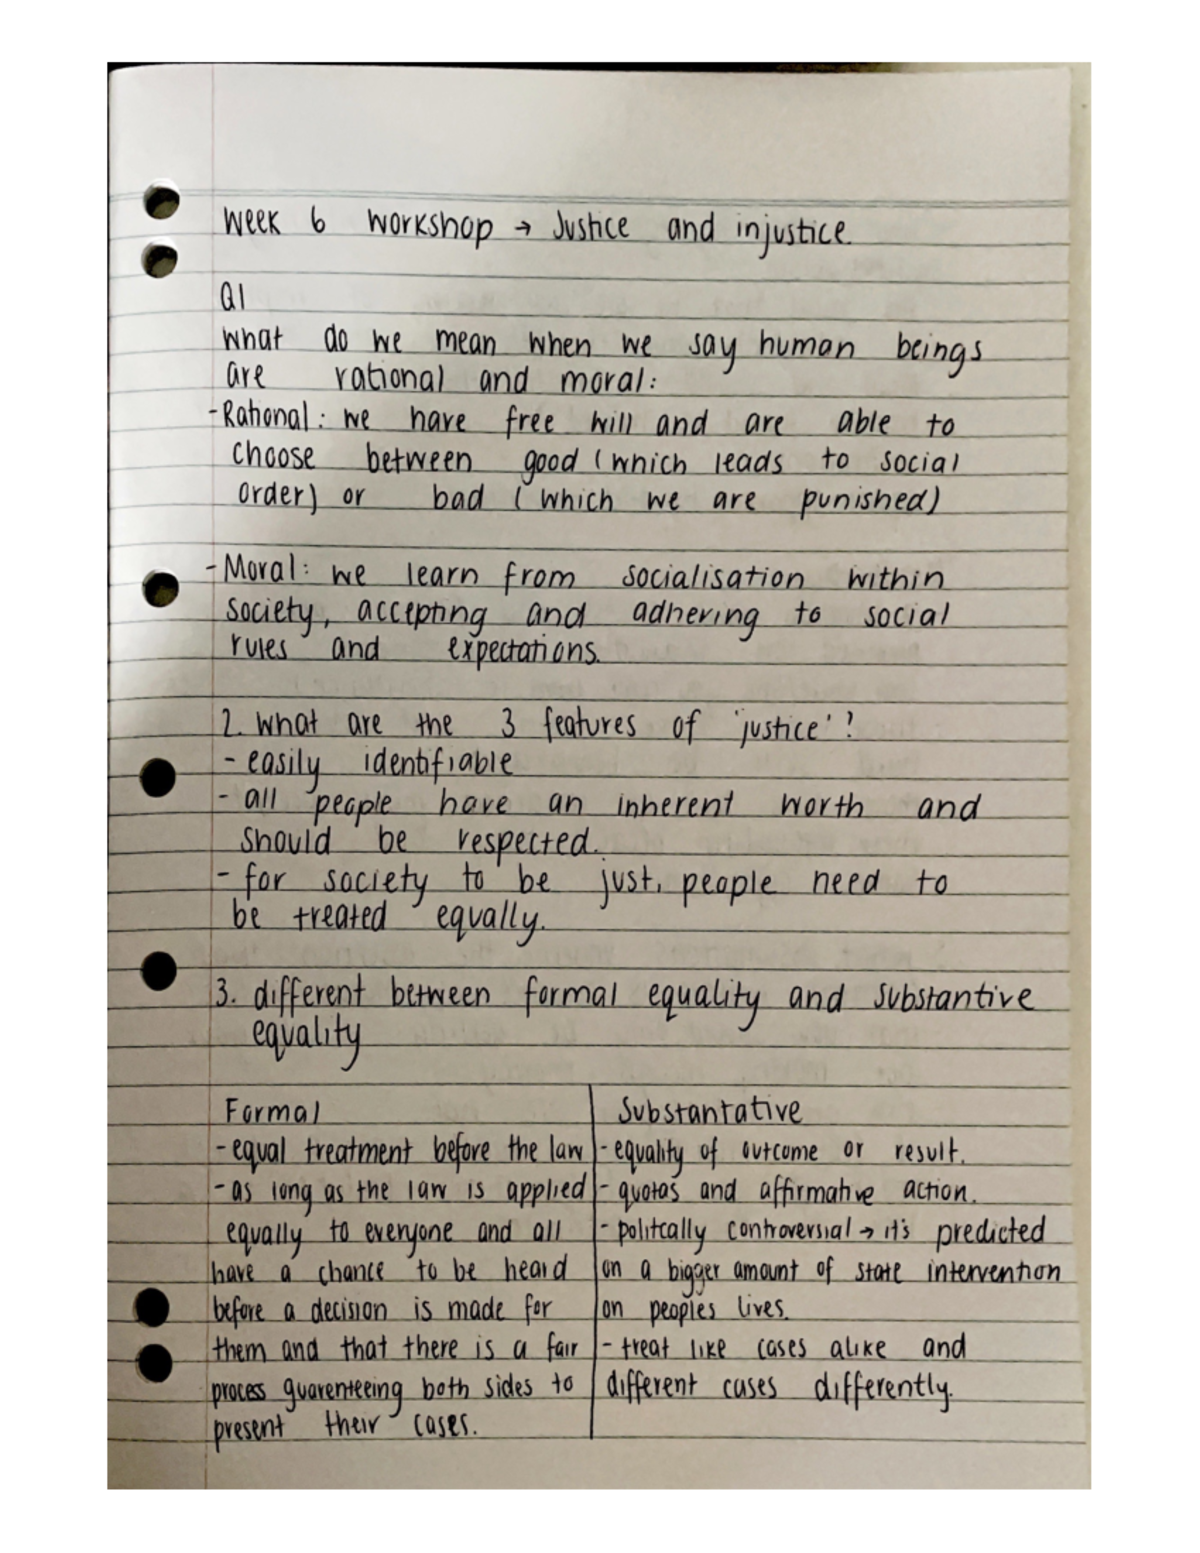 Week 6 workshop → Justice and injustice.
Q1
What do we mean when we say human beings
are rational and moral:
-Rational: we have free will and are able to
choose between good (which leads to social
order) or bad (which we are punished)
-Moral: we learn from socialisation within
society, accepting and adhering to social
rules and expectations.
2. What are the 3 features of 'justice'?
- easily identifiable
- all people have an inherent worth and
should be respected.
- for society to be just, people need to
be treated equally.
3. different between formal equality and substantive
equality
Formal
- equal treatment before the law
- as long as the law is applied
equally to everyone and all
have a chance to be heard
before a decision is made for
them and that there is a fair
process guarenteeing both sides to
present their cases.
Substantative
- equality of outcome or result.
- quotas and affirmative action.
- politcally controversial → it's predicted
on a bigger amount of state intervention
on peoples lives.
- treat like cases alike and
different cases differently.